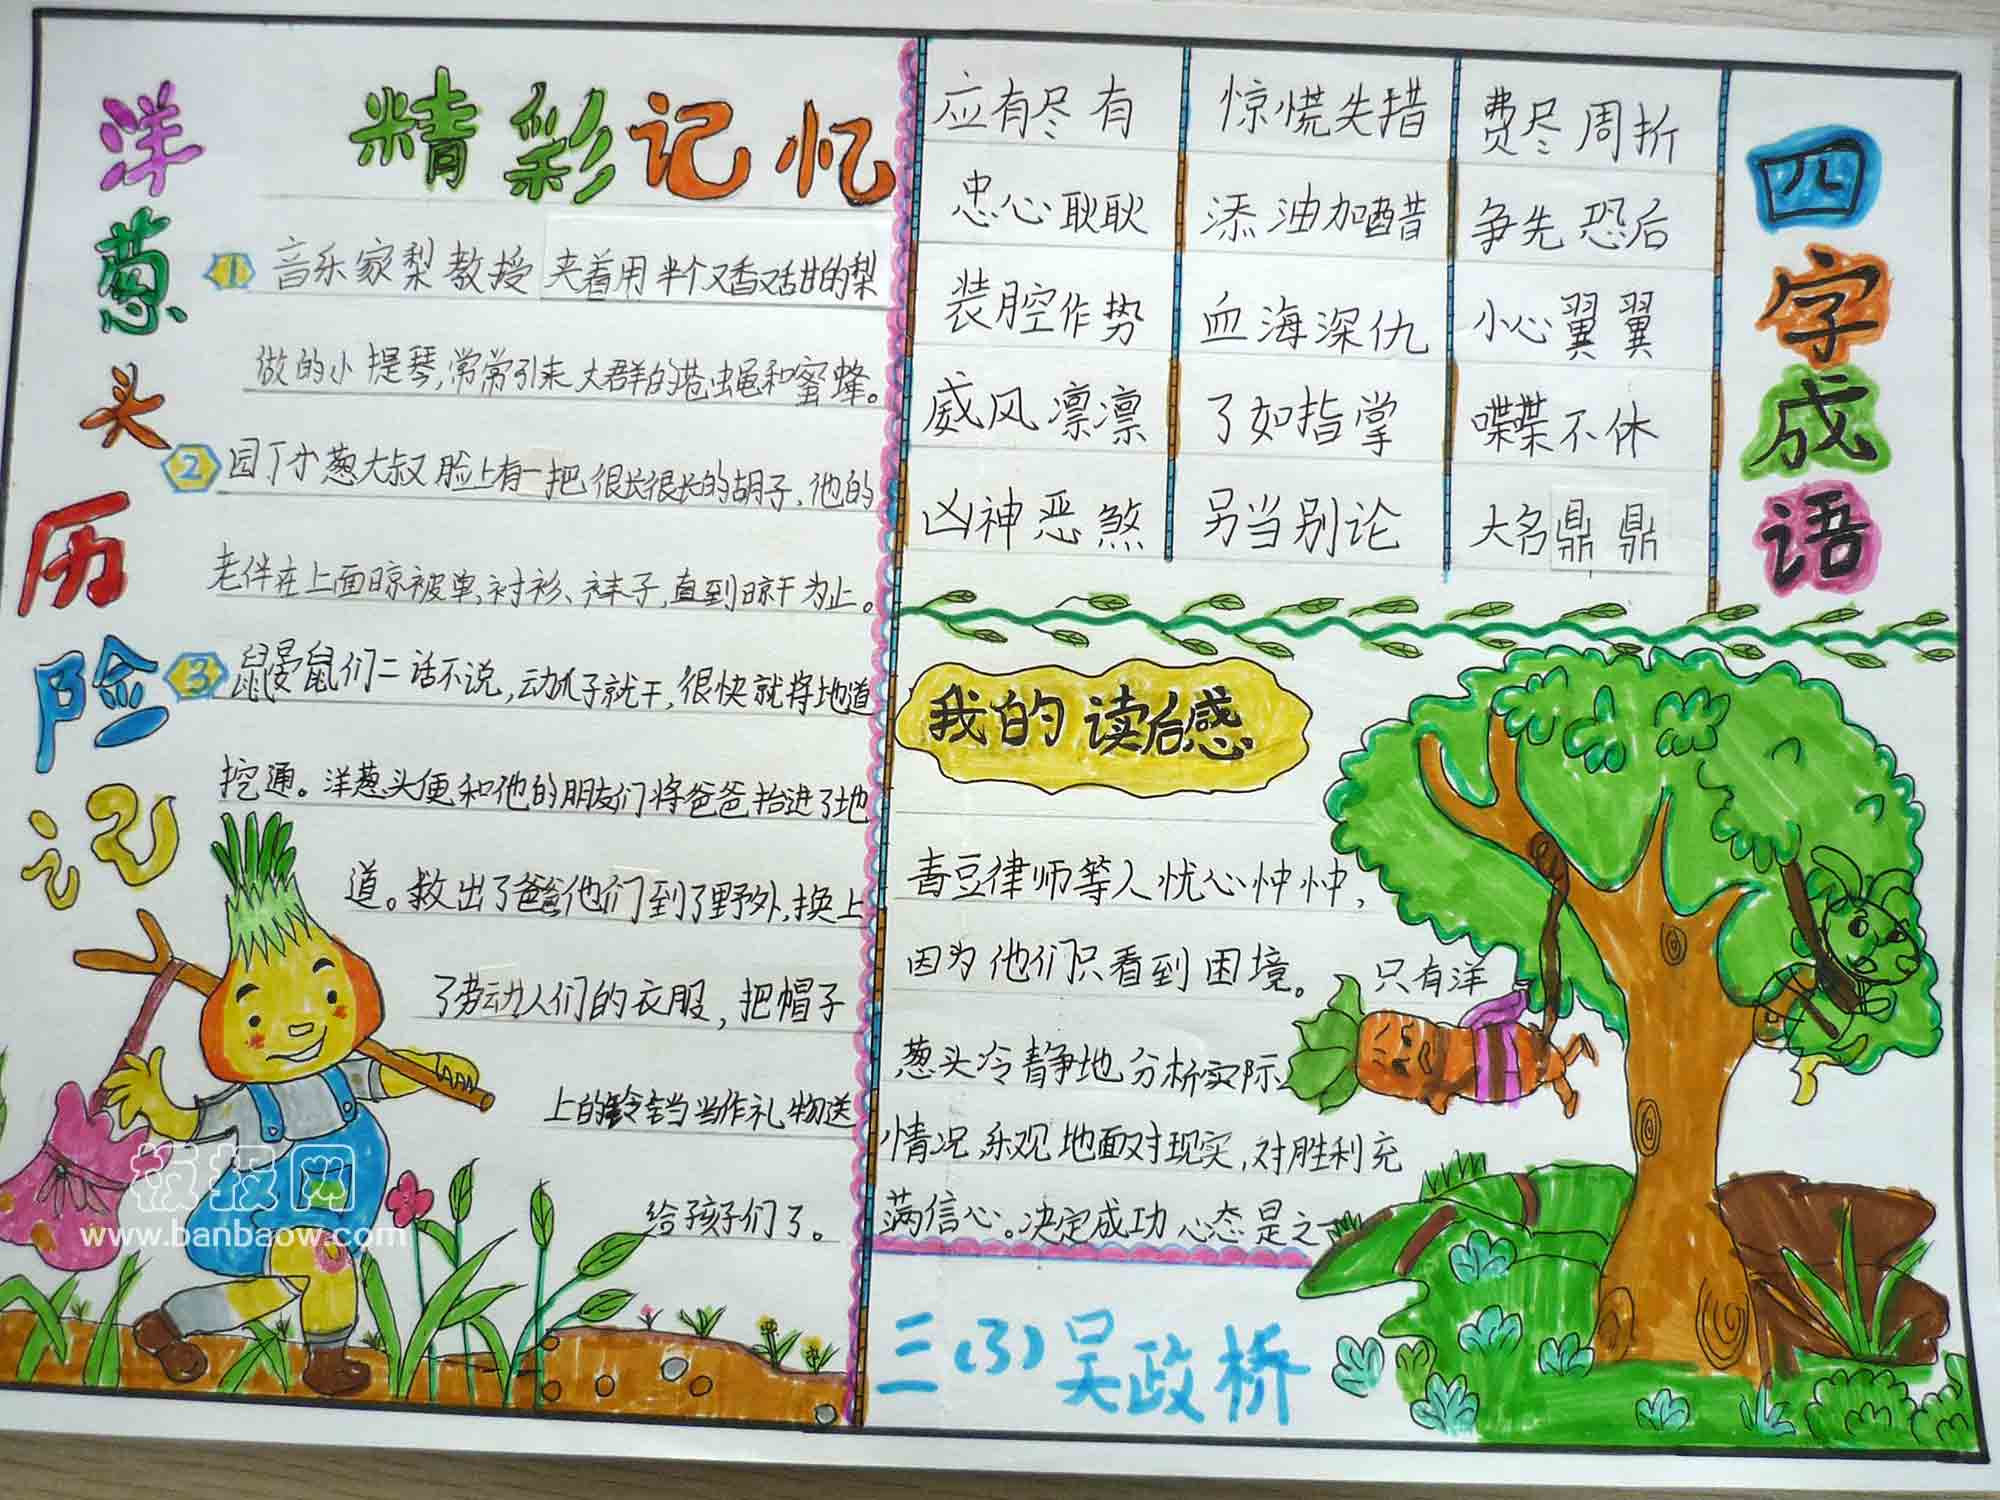 洋葱头历险记
精彩记忆
1 音乐家梨教授夹着用半个又香又甜的梨
做的小提琴,常常引来大群的苍蝇和蜜蜂。
2 园丁小葱大叔脸上有一把很长很长的胡子,他的
老伴在上面晾被单、衬衫、袜子,直到晾干为止。
3 鼹鼠们二话不说,动爪子就干,很快就将地道
挖通。洋葱头便和他的朋友们将爸爸抬进了地
道。救出了爸爸他们到了野外,换上
了劳动人们的衣服,把帽子
上的铃铛当作礼物送
给孩子们了。
应有尽有 惊慌失措 费尽周折
忠心耿耿 添油加醋 争先恐后
装腔作势 血海深仇 小心翼翼
威风凛凛 了如指掌 喋喋不休
凶神恶煞 另当别论 大名鼎鼎
四字成语
我的读后感
青豆律师等人忧心忡忡,
因为他们只看到困境。只有洋
葱头冷静地分析实际
情况,乐观地面对现实,对胜利充
满信心。决定成功心态是之
三(3)吴政桥
板报网
www.banbaow.com